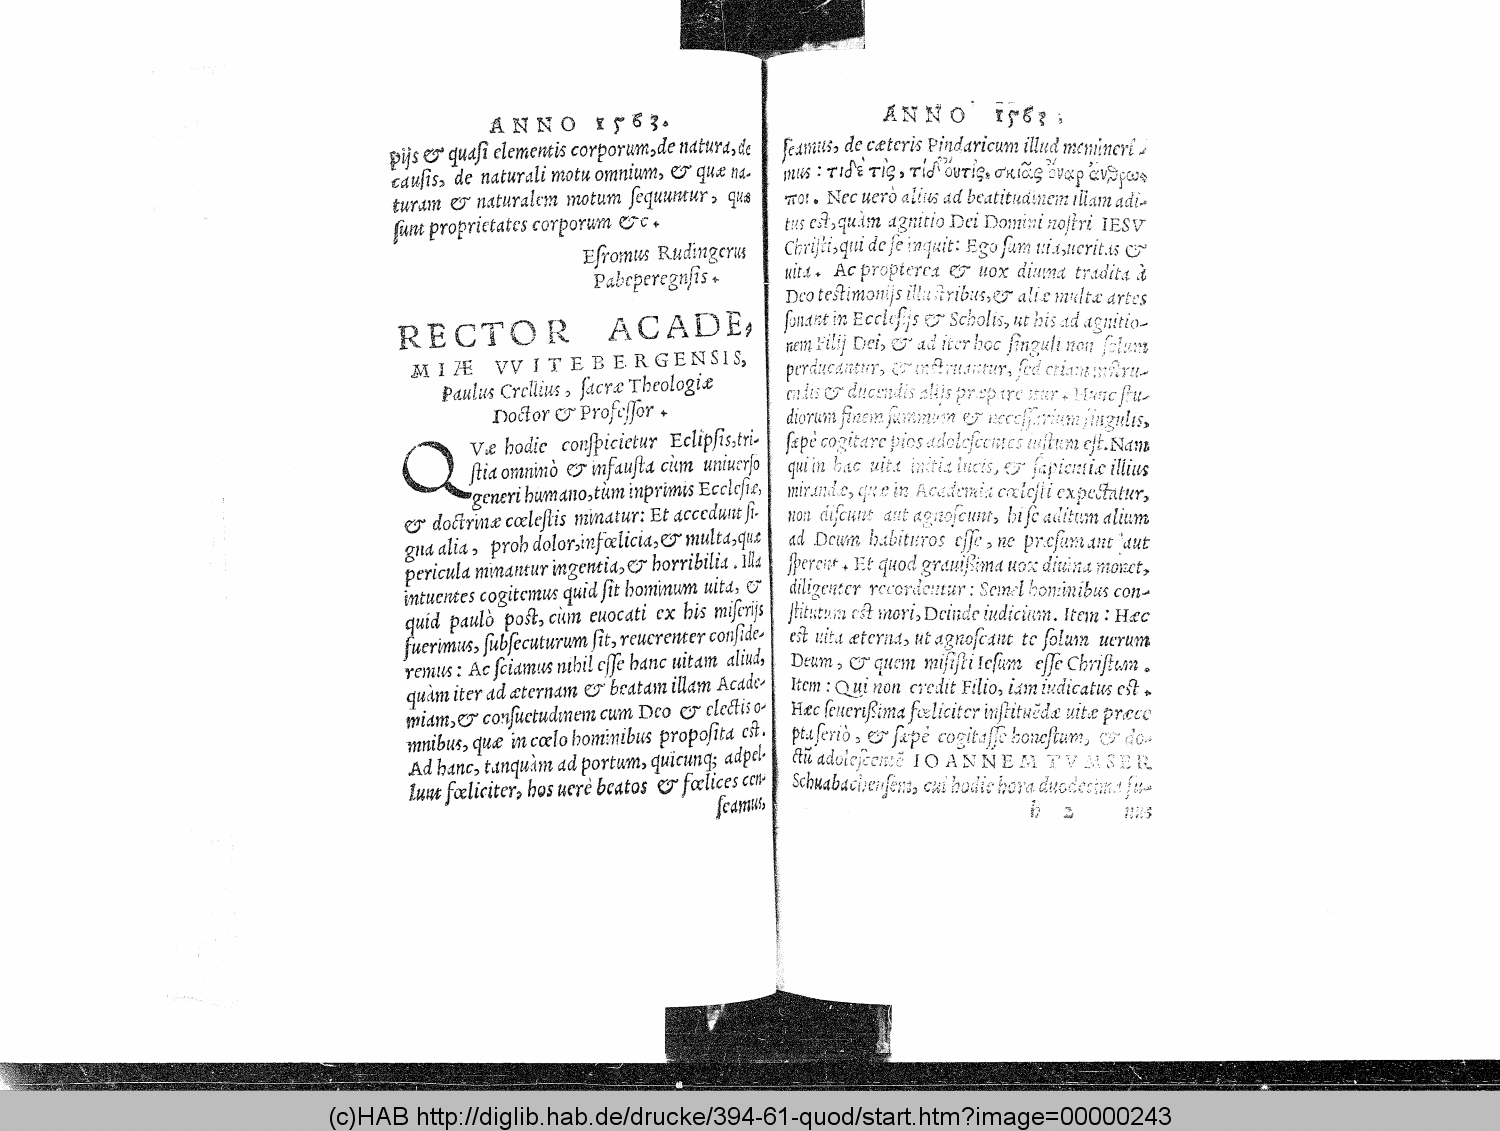 ANNO 1563.
pijs & quasi elementis corporum, de natura, de
causis, de naturali motu omnium, & quæ na-
turam & naturalem motum sequuntur, quæ
sunt proprietates corporum &c.
Esromus Rudingerus
Pabepergensis.
RECTOR ACADE,
MIÆ VVITEBERGENSIS,
Paulus Crellius, sacræ Theologiæ
Doctor & Professor.
QVæ hodie conspicietur Eclipsis, tri-
stia omninò & infausta cùm uniuerso
generi humano, tùm inprimis Ecclesiæ,
& doctrinæ cœlestis minatur: Et accedunt si-
gna alia, proh dolor, infœlicia, & multa, quæ
pericula minantur ingentia, & horribilia. Illa
intuentes cogitemus quid sit hominum uita, &
quid paulò post, cùm euocati ex his miserijs
fuerimus, subsecuturum sit, reuerenter conside-
remus: Ac sciamus nihil esse hanc uitam aliud,
quàm iter ad æternam & beatam illam Acade-
miam, & consuetudinem cum Deo & electis o-
mnibus, quæ in cœlo hominibus proposita est.
Ad hanc, tanquàm ad portum, quicunq; adpel-
lunt fœliciter, hos uerè beatos & fœlices cen-
seamus,
ANNO 1563.
seamus, de cæteris Pindaricum illud memineri-
mus: τι δέ τὶς, τί δ' οὔτις, σκιᾶς ὄναρ ἄνθρω-
ποι. Nec uerò alius ad beatitudinem illam adi-
tus est, quàm agnitio Dei Domini nostri IESV
Christi, qui de se inquit: Ego sum uia, ueritas &
uita. Ac propterea & uox diuina tradita à
Deo testimonijs illustribus, & aliæ multæ artes
sonant in Ecclesijs & Scholis, ut his ad agnitio-
nem Filij Dei, & ad iter hoc singuli non solum
perducantur, & instruantur, sed etiam instru-
endis & ducendis alijs præparentur. Hunc stu-
diorum finem summum & necessarium singulis,
sæpè cogitare pios adolescentes iustum est. Nam
qui in hac uita initia lucis, & sapientiæ illius
mirandæ, quæ in Academia cœlesti expectatur,
non discunt aut agnoscunt, hi se aditum alium
ad Deum habituros esse, ne præsumant aut
sperent. Et quod grauissima uox diuina monet,
diligenter recordentur: Semel hominibus con-
stitutum est mori, Deinde iudicium. Item: Hæc
est uita æterna, ut agnoscant te solum uerum
Deum, & quem misisti Iesum esse Christum.
Item: Qui non credit Filio, iam iudicatus est.
Hæc seuerissima fœliciter instituēdæ uitæ præce
pta seriò, & sæpè cogitasse honestum, & do-
ctū adolescentē IOANNEM TVMSER
Schuabachensem, cui hodie hora duodecima fu-
h 2 nus
(c)HAB http://diglib.hab.de/drucke/394-61-quod/start.htm?image=00000243